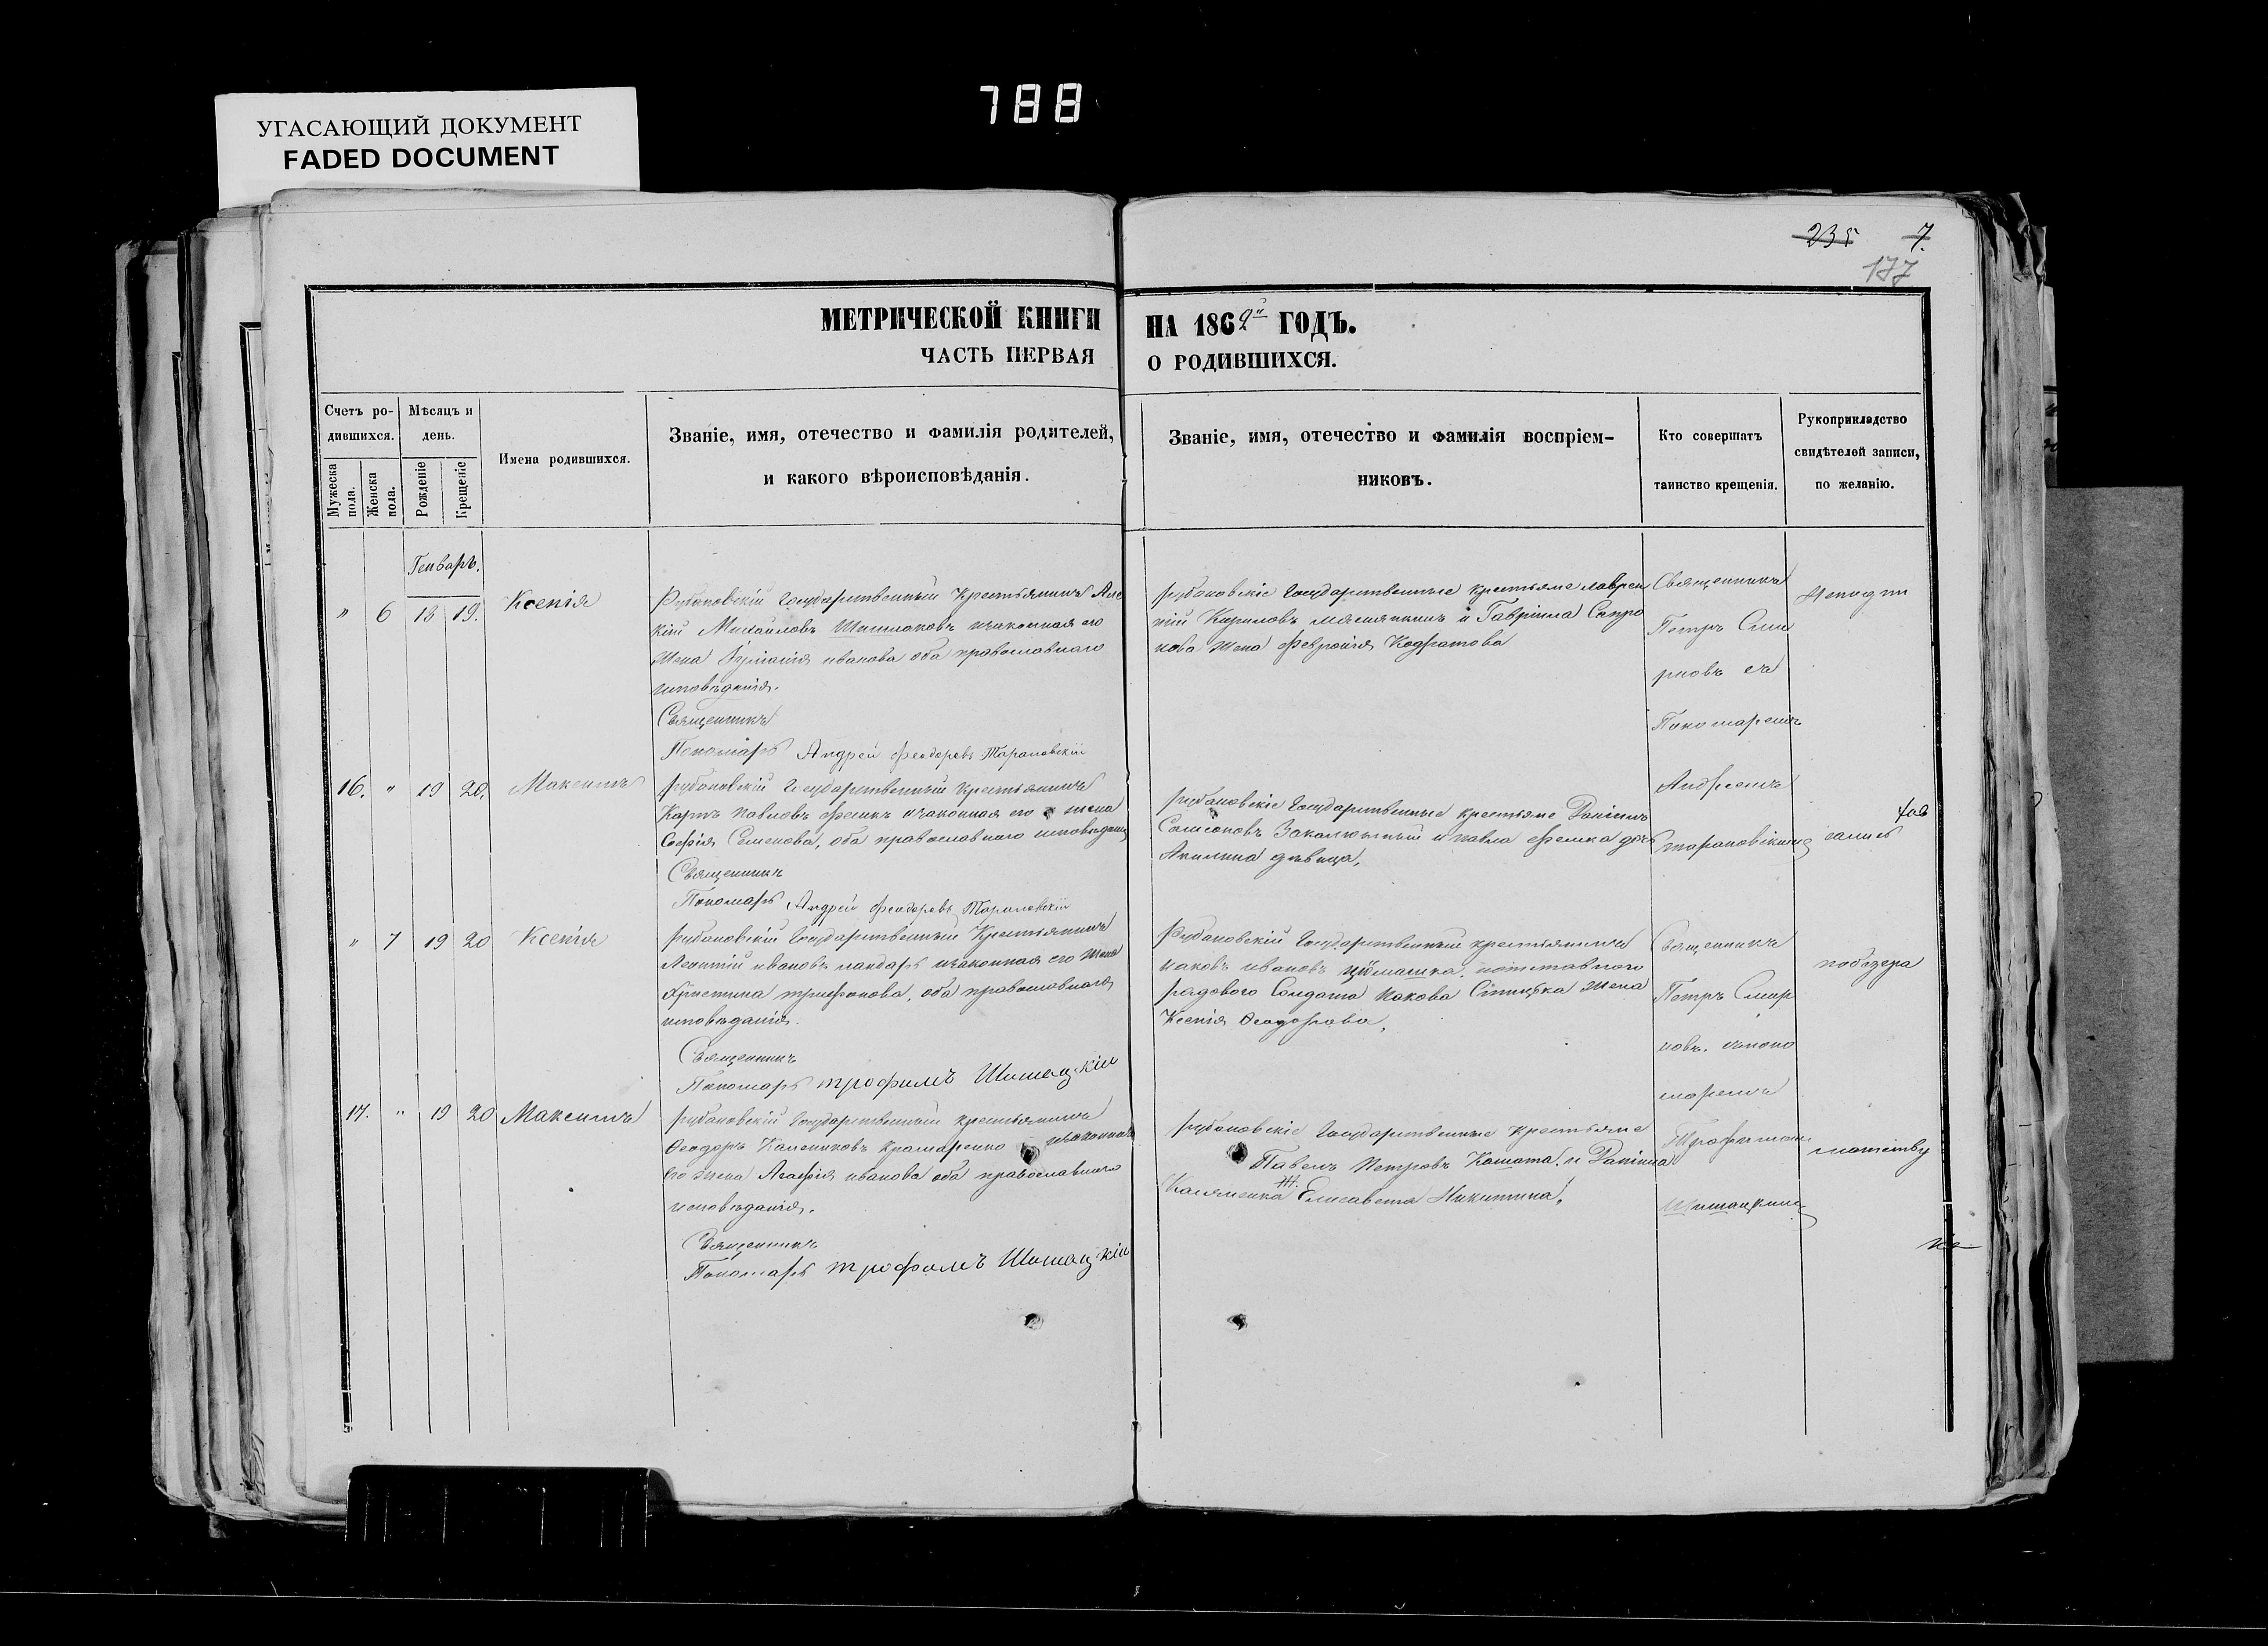 788
УГАСАЮЩИЙ ДОКУМЕНТ
FADED DOCUMENT
235 7.
177
МЕТРИЧЕСКОЙ КНИГИ НА 1862й ГОДЪ.
ЧАСТЬ ПЕРВАЯ О РОДИВШИХСЯ.
Счетъ ро-
дившихся.
Мужеска пола.
Женска пола.
Мѣсяцъ и
день.
Рожденіе
Крещеніе
Имена родившихся.
Званіе, имя, отечество и фамилія родителей,
и какого вѣроисповѣданія.
Званіе, имя, отечество и фамилія воспріем-
никовъ.
Кто совершатъ
таинство крещенія.
Рукоприкладство
свидѣтелей записи,
по желанію.
Генварь.
" 6 18 19. Ксенія
Рубановскій Государственный Крестьянинъ Але
кій Михайловъ изаконная его
жена иванова оба православнаго
исповѣданія.
Священникъ
Пономарь Андрей Феодоровъ Тарановскій
рубановскіе Государственные крестьяне лаврен
тій Кириловъ и Гавріила Сапро
нова жена Февронія Кодратова
Священникъ
Петръ Сми
рновъ съ
Пономаремъ
Андреемъ
тарановскимъ
16. " 19 20. Максимъ
рубановскій Государственный крестьянинъ
Карпъ Павловъ Фесикъ изаконная его жена
Софія Семенова, оба православнаго исповѣданія
Священникъ
Пономарь Андрей Феодоровъ Тарановскій
рубановскіе Государственные крестьяне Даніилъ
Самсоновъ и павла Фесика дочь
Акилина дѣвица,
" 7 19 20 Ксенія
рубановскій Государственный Крестьянинъ
Леонтій ивановъ изаконная его жена
Христина трифонова, оба православнаго
исповѣданія.
Священникъ
Пономарь трофимъ Шишацкій
Рубановскій Государственный крестьянинъ
иаковъ ивановъ
рядового Солдата Иакова жена
Ксенія Феодорова,
Священникъ
Петръ Смир
новъ. съпоно
маремъ
Трофимомъ
Шишацкимъ
17. " 19 20 Максимъ
рубановскій Государственный крестьянинъ
Феодоръ Калениковъ Крамаренко изаконная
его жена Агафія иванова оба православнаго
исповѣданія.
Священникъ
Пономарь трофимъ Шишацкій
рубановскіе Государственные Крестьяне
Павелъ Петровъ и Даніила
ж. Елисавета Никитина,